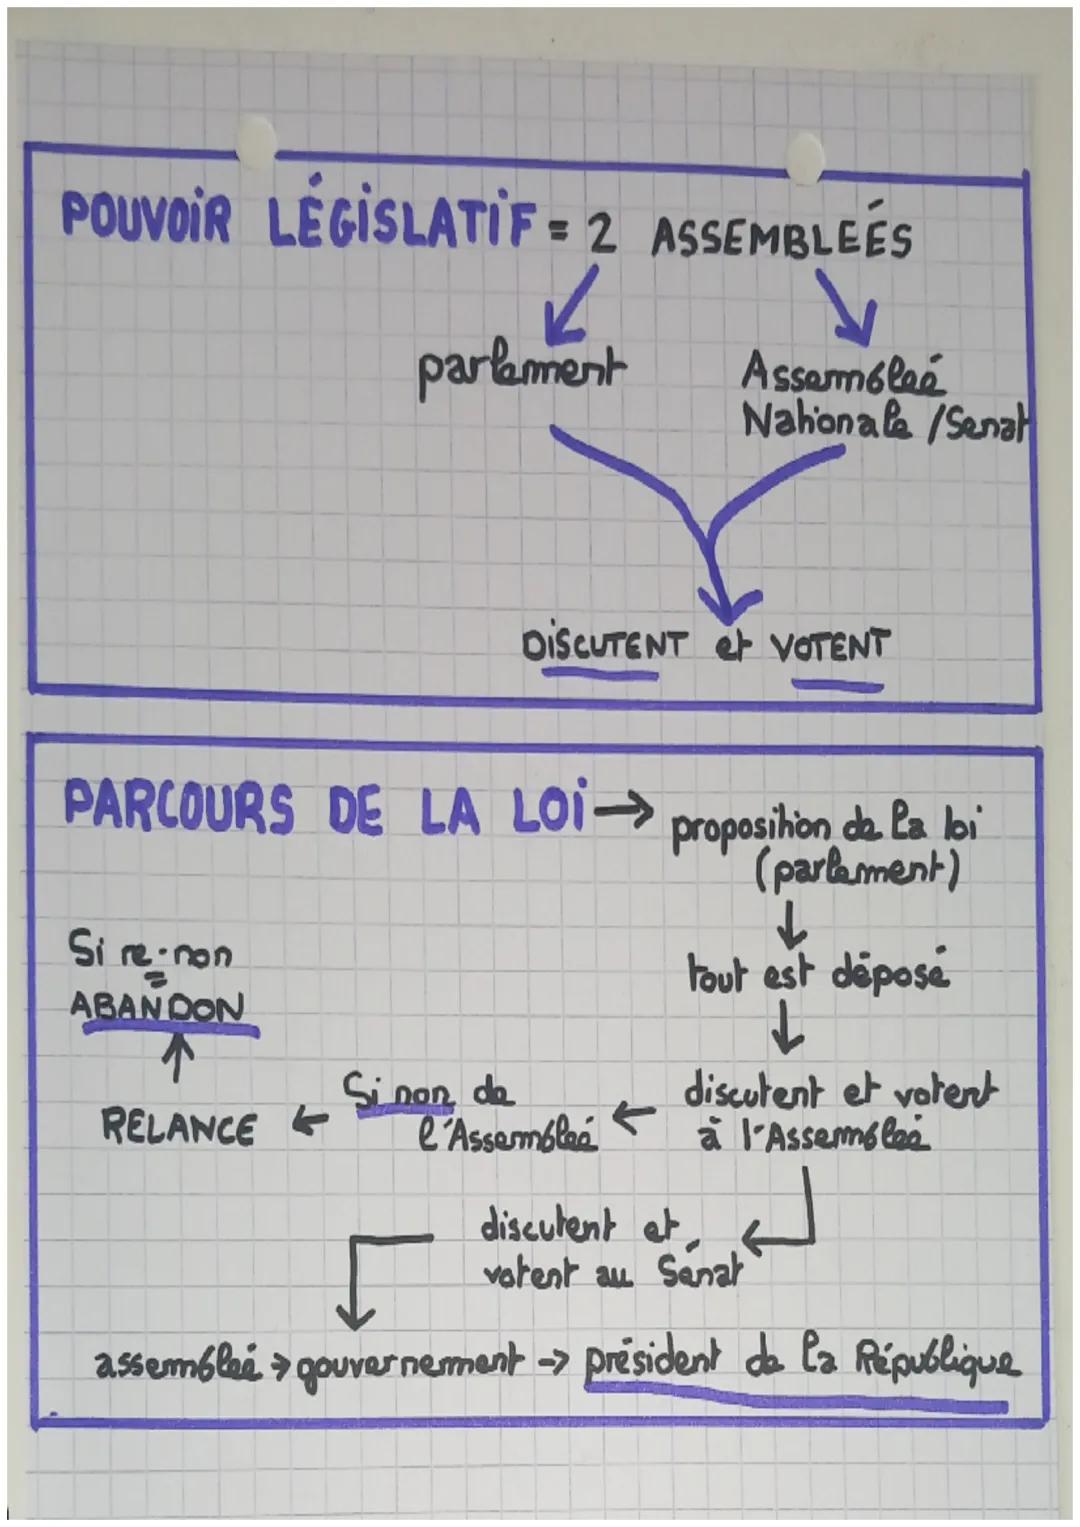 POUVOIR LÉGISLATIF = 2 ASSEMBLEÉS
parlement
Assembleé
Nationale / Senat
DISCUTENT et VOTENT
PARCOURS DE LA LOI → proposition de la loi
(parlement)
↓
tout est déposé
↓
discutent et votent
à l'Assembleé
← Si non de
l'Assembleé
← RELANCE
↑
Si re-non
=
ABANDON
discutent et
votent au Sénat
assembleé → gouvernement → président de la République